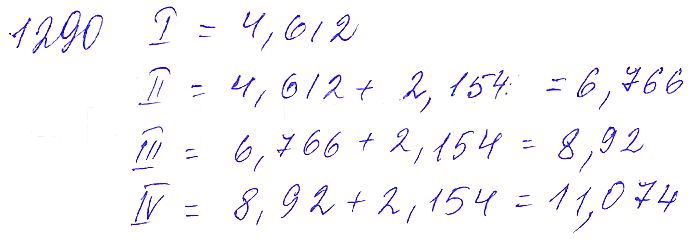 1290 I = 4,612
II = 4,612 + 2,154 = 6,766
III = 6,766 + 2,154 = 8,92
IV = 8,92 + 2,154 = 11,074